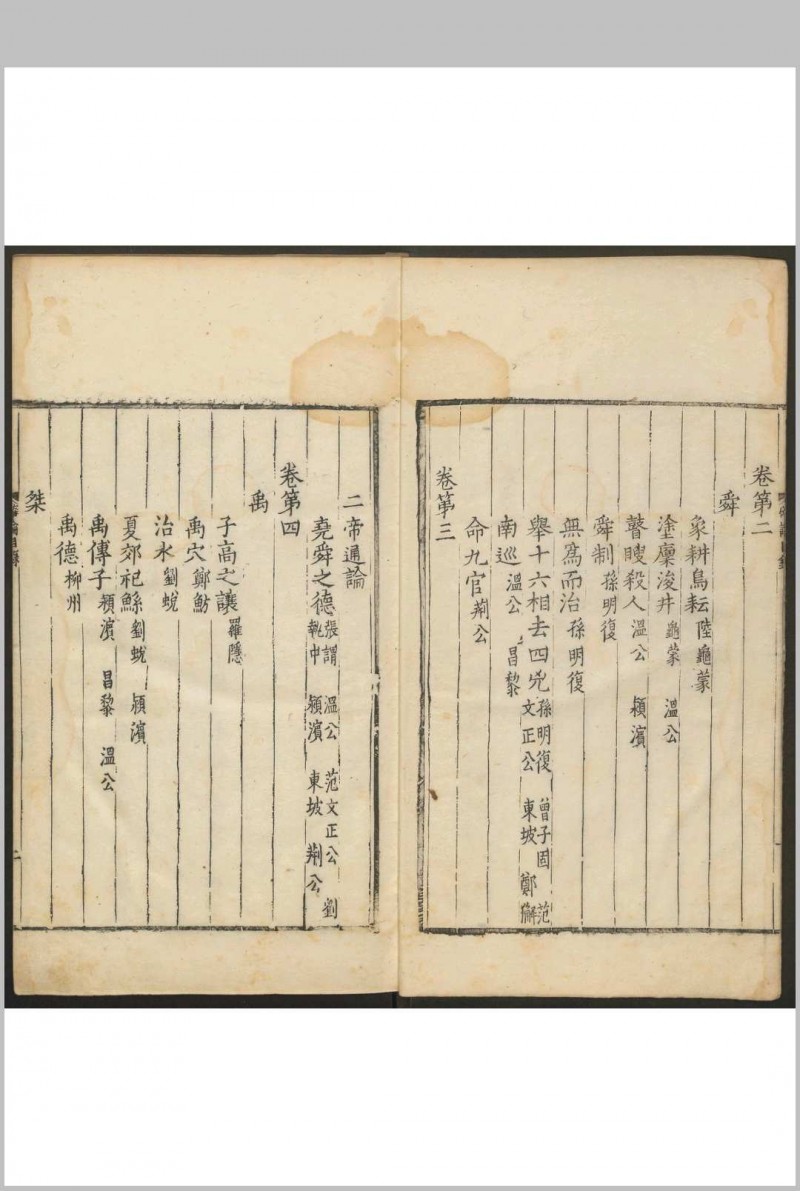 卷第二
舜
象耕鳥耘 陸龜蒙
塗廩浚井 龜蒙 溫公
瞽瞍殺人 溫公 潁濱
舜制 孫明復
無爲而治 孫明復
舉十六相去四兇 孫明復 曾子固 范
文正公 東坡 鄭獬
南巡 溫公 昌黎
命九官 荊公
卷第三
二帝通論
堯舜之德 張謂 溫公 范文正公 劉
執中 潁濱 東坡 荆公
卷第四
禹
子高之讓 羅隱
禹穴 鄭魴
治水 劉蛻
夏郊祀鯀 劉蛻 潁濱
禹傳子 潁濱 昌黎 溫公
禹德 柳州
桀